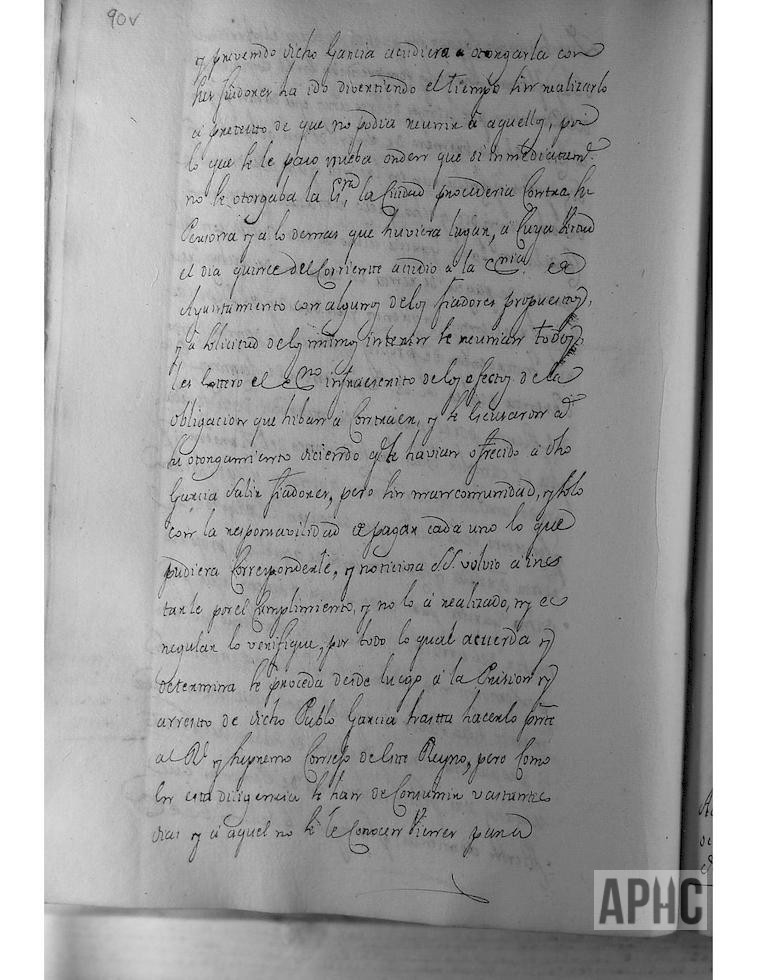 90v
y prevenido dicho Garcia acudiera a otorgarla con
sus fiadores ha ido divertiendo el tiempo sin realizarlo
a pretexto de que no podia reunir a aquellos, por
lo que se le paso nueba orden que si inmediatamte
no se otorgaba la Esra, la Ciudad procederia Contra su
Persona y a lo demas que huviera lugar, a Cuya Virtud
el dia quince del Corriente acudio a la Esnia de
Ayuntamiento con algunos de los fiadores propuestos,
y a solicitud de los mismos interin se reunian todos,
les entero el Esno infraescrito de los efectos de la
obligacion que hiban a Contraer, y se Escusaron a
su otorgamiento diciendo q.e se havian ofrecido a dho
Garcia Salir fiadores, pero sin mancomunidad, y solo
con la responsavilidad de pagar cada uno lo que
pudiera Corresponderle, y noticiosa S.S. volvio a ins
tarle por el Cumplimiento, y no lo a realizado, ny es
regular lo verifique, por todo lo qual acuerda y
determina se proceda desde luego a la Prision y
arresto de dicho Pablo Garcia hasta hacerlo prte
al Rl y Supremo Consejo de este Reyno, pero Como
en esta diligencia se han de Consumir vastantes
dias y a aquel no se le Conocen Vienes para
APHC